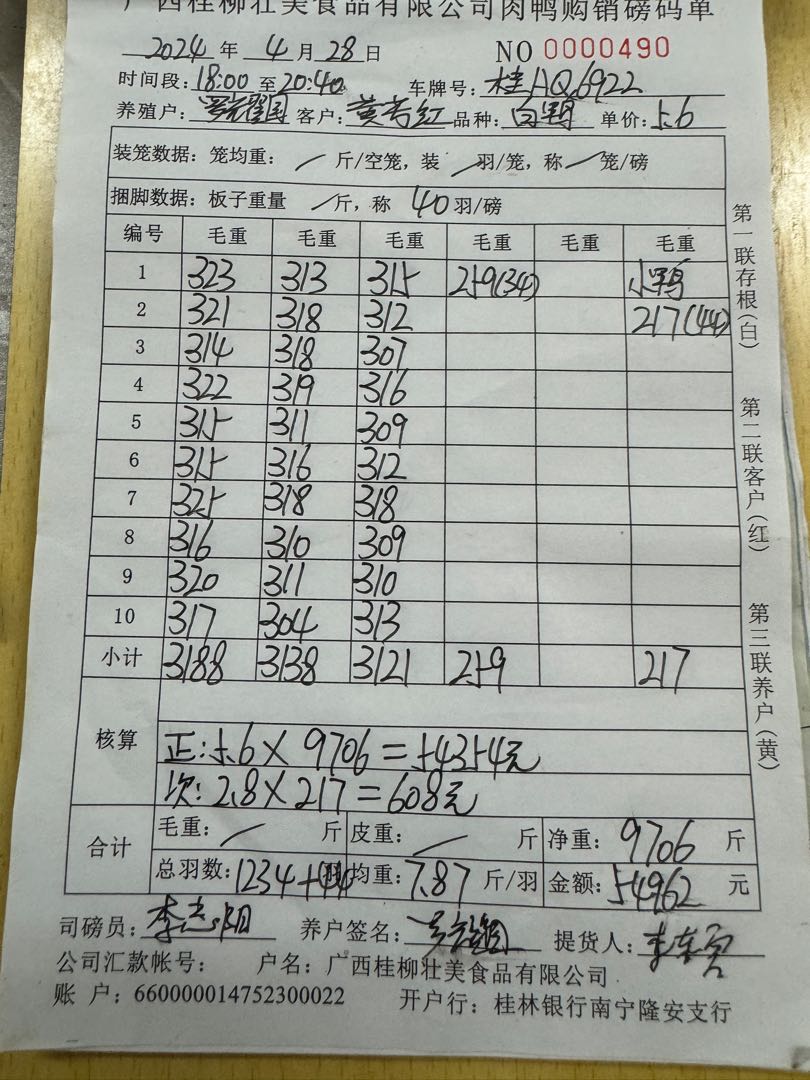 广西桂柳壮美食品有限公司肉鸭购销磅码单
2024 年 4 月 28 日 NO 0000490
时间段: 18:00 至 20:40 车牌号: 桂AQ6922
养殖户: 客户: 黄杏红 品种: 白鸭 单价: 5.6
装笼数据: 笼均重: / 斤/空笼, 装 / 羽/笼, 称 / 笼/磅
捆脚数据: 板子重量 / 斤, 称 40 羽/磅
编号 毛重 毛重 毛重 毛重 毛重 毛重
1 323 313 315 259(34) 小鸭
2 321 318 312 217(44)
3 314 318 307
4 322 319 316
5 315 311 309
6 315 316 312
7 325 318 318
8 316 310 309
9 320 311 310
10 317 304 313
小计 3188 3138 3121 259 217
核算
正: 5.6 × 9706 = 54354元
次: 2.8 × 217 = 608元
合计
毛重: / 斤 皮重: / 斤 净重: 9706 斤
总羽数: 1234+44 均重: 7.87 斤/羽 金额: 54962 元
司磅员: 李志阳 养户签名: 提货人:
公司汇款帐号: 户名: 广西桂柳壮美食品有限公司
账 户: 660000014752300022 开户行: 桂林银行南宁隆安支行
第一联存根(白)
第二联客户(红)
第三联养户(黄)